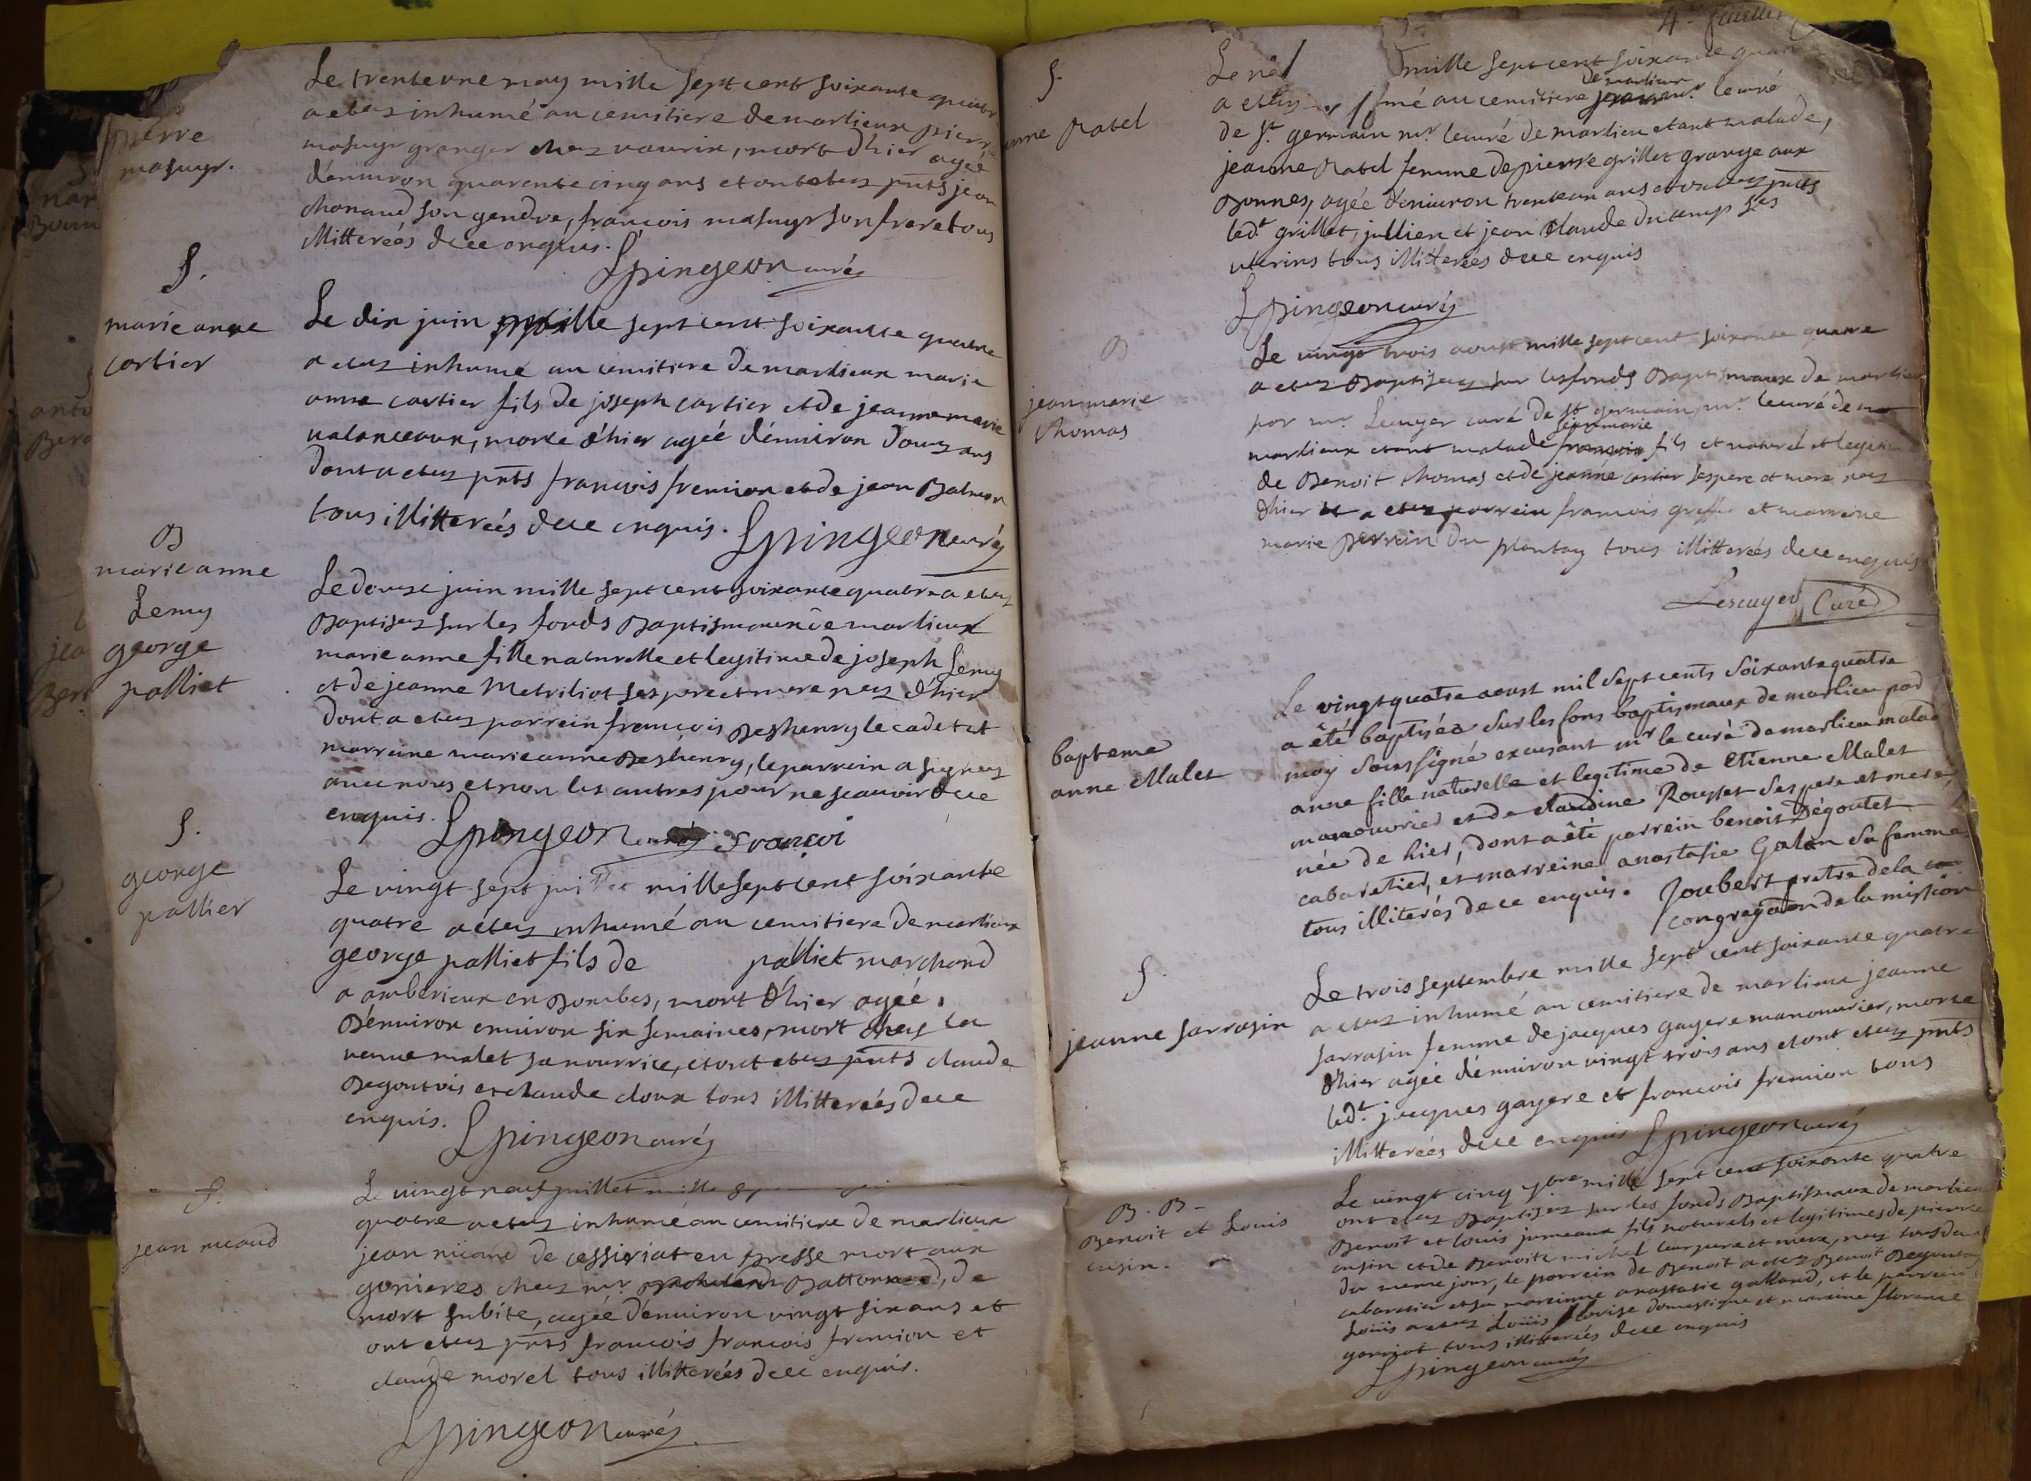 pierre
masuyr.
Le trente une may mille sept cent soixante quatr
a etez inhumé au cemitiere de marlieux pierre
masuyr granger chez vaurix, mort d'hier agée
d'enuiron quarente cinq ans et ont etez pnts jean
chanaud son gendre, francois masuyr son frere tous
illitterées de ce enquis.
Spingeon curéz
S.
marie anne
cartier
Le dix juin mille sept cent soixante quatre
a etez inhumé au cemitiere de marlieux marie
anne cartier fils de joseph cartier et de jeanne marie
valanceaux, morte d'hier agée d'enuiron douz ans
dont a etez pnts francois fremion et de jean Balmon
tous illitterées de ce enquis. Spingeon curéz
B
marie anne
Lemy
george
palliet
Le douze juin mille sept cent soixante quatre a etez
Baptisez sur les fonds Baptismaux de marlieux
marie anne fille naturelle et legitime de joseph Lemy
et de jeanne Metriliot ses pere et mere nez d'hier
dont a etez parrein françois Deshenry le cadet et
marreine marie anne Deshenry, le parrein a signez
auec nous et non les autres pour ne scauoir de ce
enquis. Spingeon curéz francoi
S.
george
pallier
Le vingt sept juillet mille sept cent soixante
quatre a etez inhumé au cemitiere de marlieux
george palliet fils de palliet marchand
a amberieux en Dombes, mort d'hier agée
d'enuiron enuiron six semaines, mort chez la
veuue malet sa nourrice, et ont etez pnts claude
Degoutois et claude cloux tous illitterées de ce
enquis. Spingeon curéz
S.
jean nicaud
Le vingt neuf juillet mille
quatre a etez inhumé au cemitiere de marlieux
jean niiaud de cessiriat en Bresse mort aux
gonieres chez mr Battonard, de
mort subite, agée d'enuiron vingt six ans et
ont etez pnts francois francois fremion et
claude morel tous illitterées de ce enquis.
Spingeon curéz
4e feuillet
S.
anne Ratel
Le mille sept cent soixante quatr
a etez mé au cemitiere de marlieux le curé
de St germain mr le curé de marlieu etant malade,
jeanne Ratel femme de pierre grillet grange aux
Bonnes, agée d'enuiron trente un ans et ont etez pnts
led.t grillet, jullien et jean claude Ducamp ses
uterins tous illitterées de ce enquis
Spingeon curéz
B
jean marie
thomas
Le vingt trois aoust mille sept cent soixante quatre
a etez Baptisez sur les fonds Baptismaux de marlieux
par mr. Lescuyer curé de St germain, mr. le curé de
marlieux etant malade jean marie fils et naturel et legitime
de Benoit thomas et de jeanne cartier ses pere et mere nez
d'hier et a etez parrein francois greffe et marreine
marie perrein du plantay tous illitterées de ce enquis
Lescuyer Curé
bapteme
anne Malet
Le vingt quatre aoust mil sept cents soixante quatre
a été baptisée sur les fons baptismaux de marlieu par
moy soussigné excusant mr le curé de marlieu malade
anne fille naturelle et legitime de Etienne Malet
manouvrier et de claudine Rousset ses pere et mere,
née de hier, dont a été parrein benoit Dégoutet
cabaretier, et marreine anastasie Galan sa femme
tous illiterés de ce enquis. Joubert pretre de la
congregation de la mission
S.
jeanne sarrasin
Le trois septembre mille sept cent soixante quatre
a etez inhumé au cemitiere de marlieux jeanne
sarrasin femme de jacques gayere manouurier, morte
d'hier agée d'enuiron vingt trois ans et ont etez pnts
led.t jacques gayere et francois fremion tous
illitterées de ce enquis Spingeon curéz
B. B.
Benoit et Louis
cusin.
Le vingt cinq 7bre mille sept cent soixante quatre
ont etez Baptisez sur les fonds Baptismaux de marlieux
Benoit et louis jumeaux fils naturels et legitimes de pierre
cusin et de Benoite michel leur pere et mere, nez tous deux
du meme jour, le parrein de Benoit a etez Benoit Degoutey
cabaratier et sa marreinne anastasie galland, et le parrein
Louis a etez Louis Louise domestique et marreine florence
garriot tous illitterées de ce enquis
Spingeon curéz